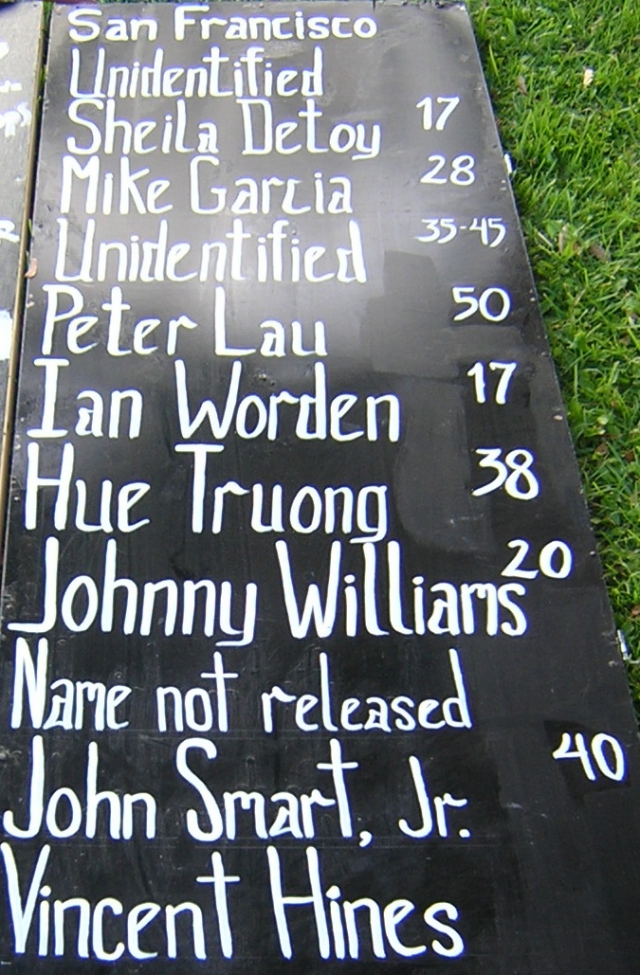 San Francisco
Unidentified
Sheila Detoy 17
Mike Garcia 28
Unidentified 35-45
Peter Lau 50
Ian Worden 17
Hue Truong 38
Johnny Williams 20
Name not released
John Smart, Jr. 40
Vincent Hines